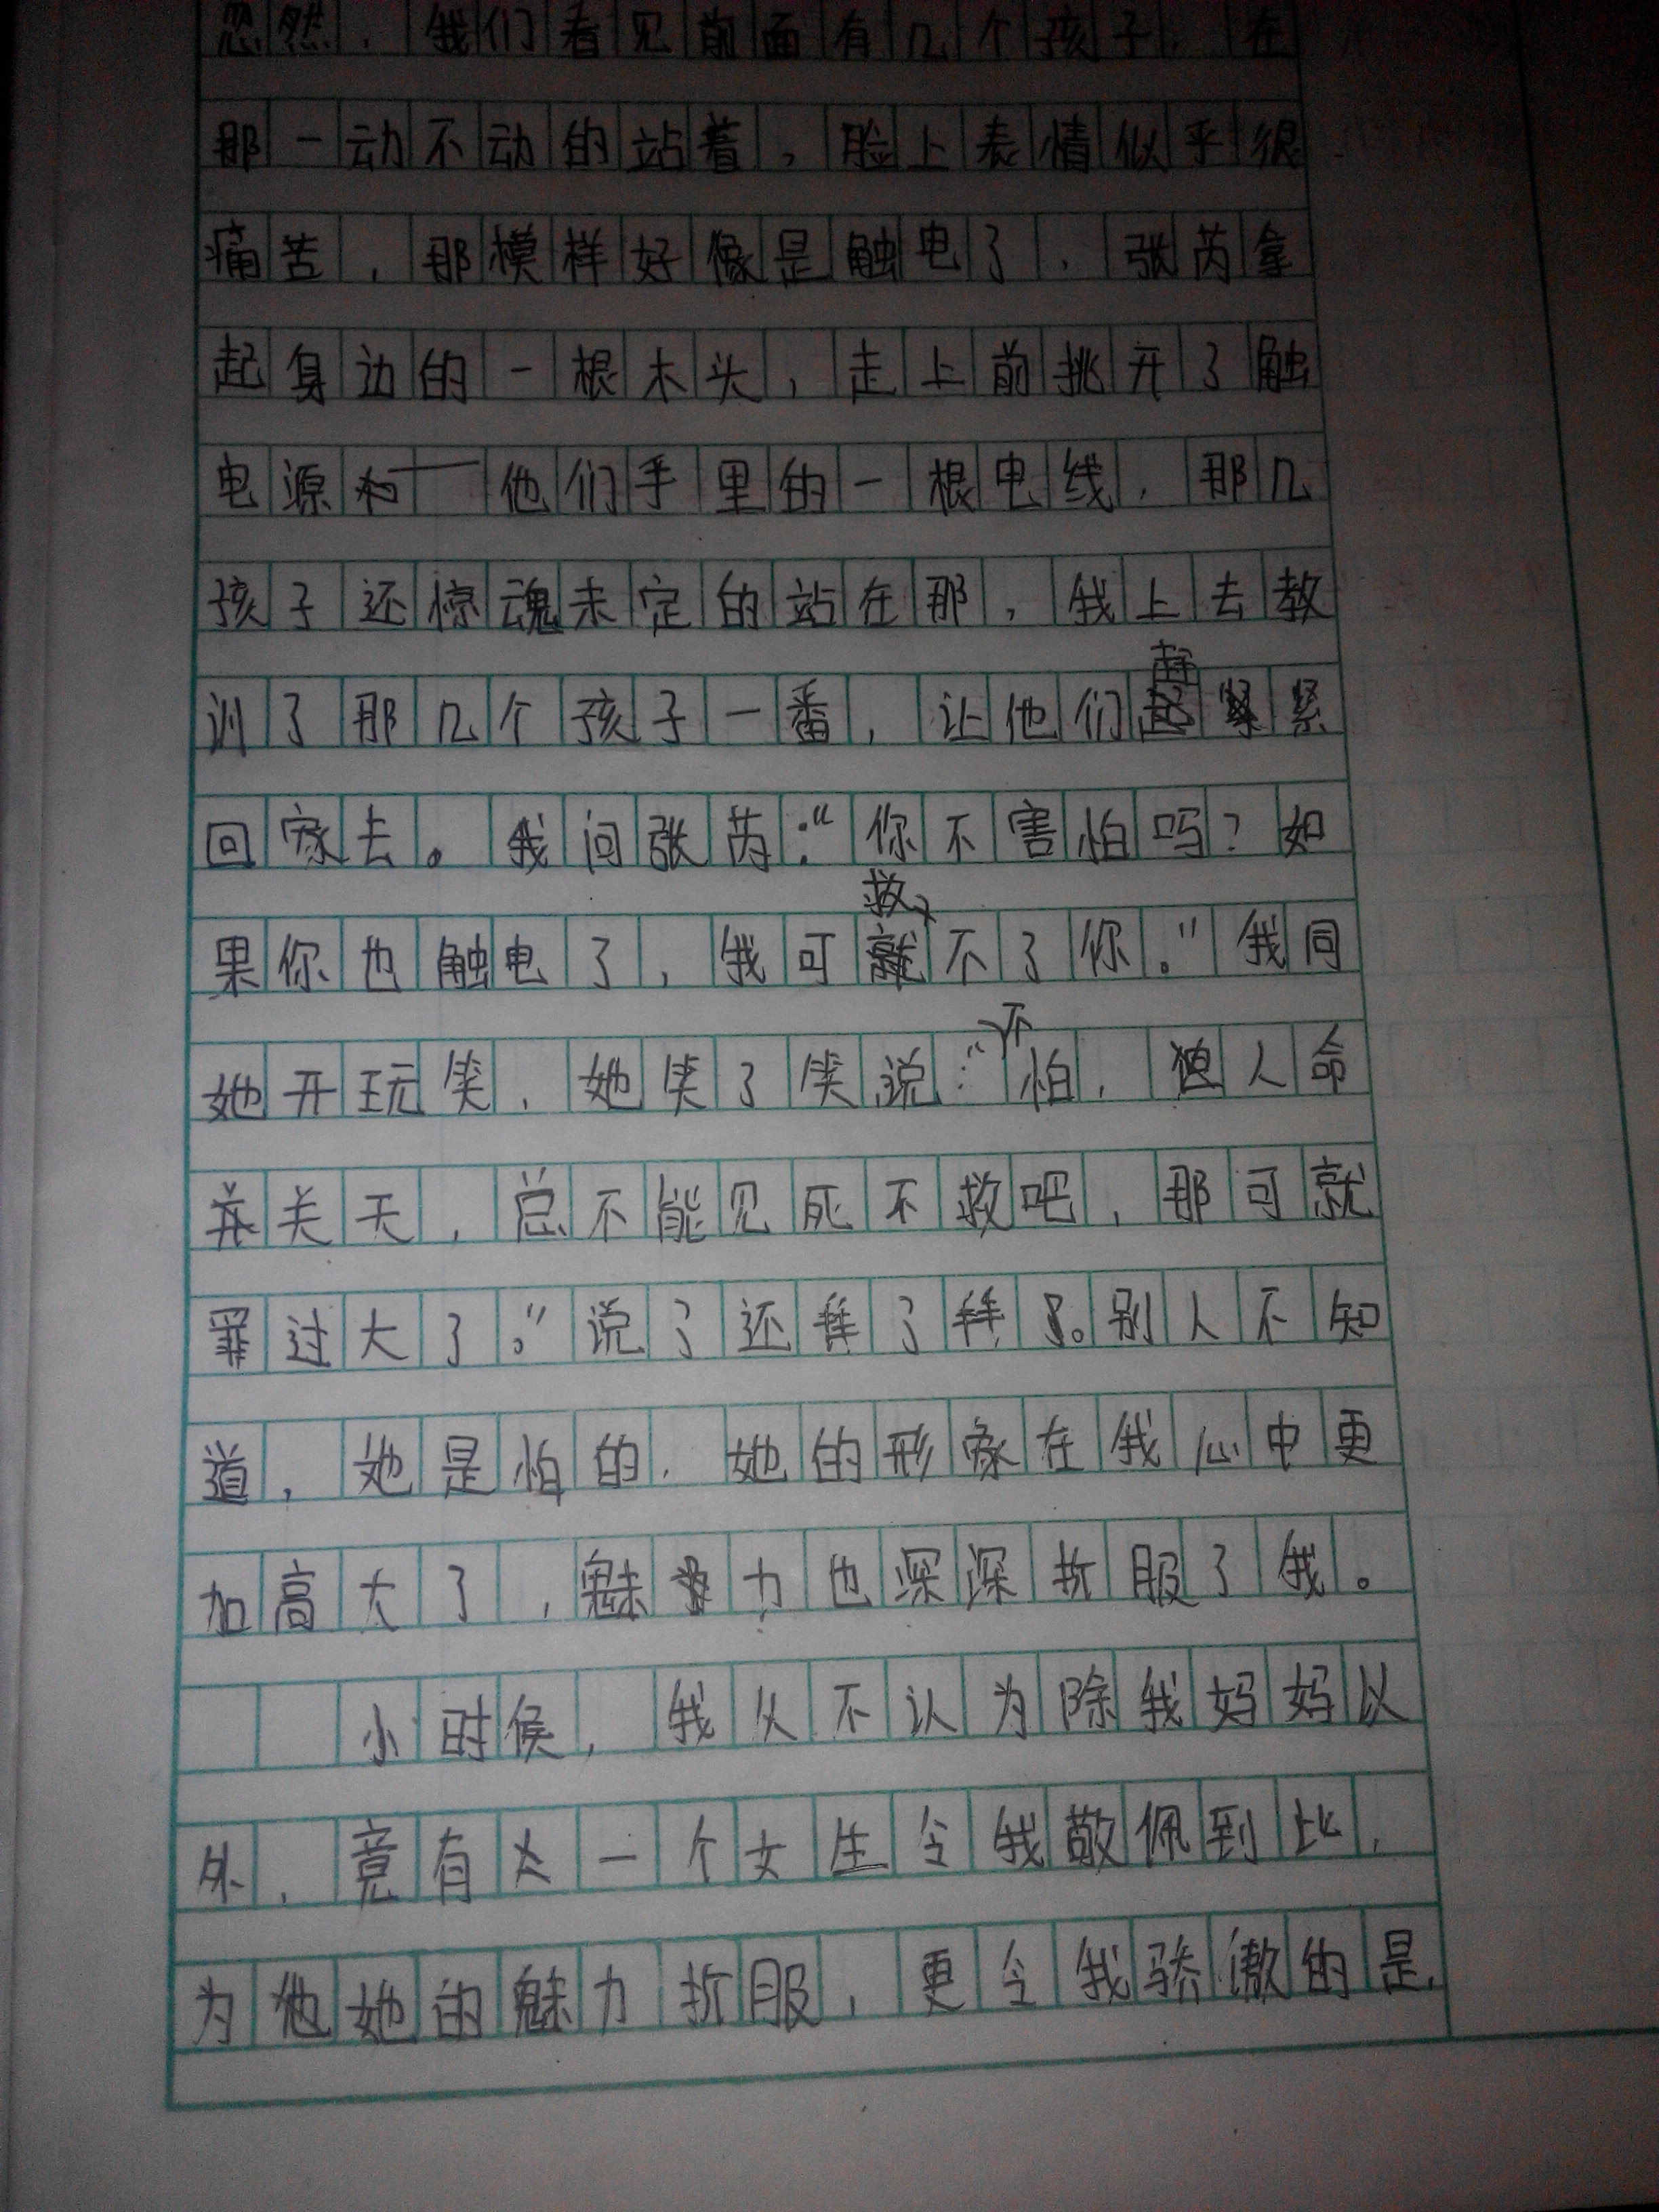 忽然，我们看见前面有几个孩子，在
那一动不动的站着，脸上表情似乎很
痛苦，那模样好像是触电了，张芮拿
起身边的一根木头，走上前挑开了触
电源和——他们手里的一根电线，那几
孩子还惊魂未定的站在那，我上去教
训了那几个孩子一番，让他们赶紧
回家去。我问张芮：“你不害怕吗？如
果你也触电了，我可救不了你。”我同
她开玩笑，她笑了笑说：“不怕，人命
关天，总不能见死不救吧，那可就
罪过大了。”说了还拜了拜。别人不知
道，她是怕的，她的形象在我心中更
加高大了，魅力也深深折服了我。
小时候，我从不认为除我妈妈以
外，竟有一个女生令我敬佩到此，
为她的魅力折服，更令我骄傲的是，